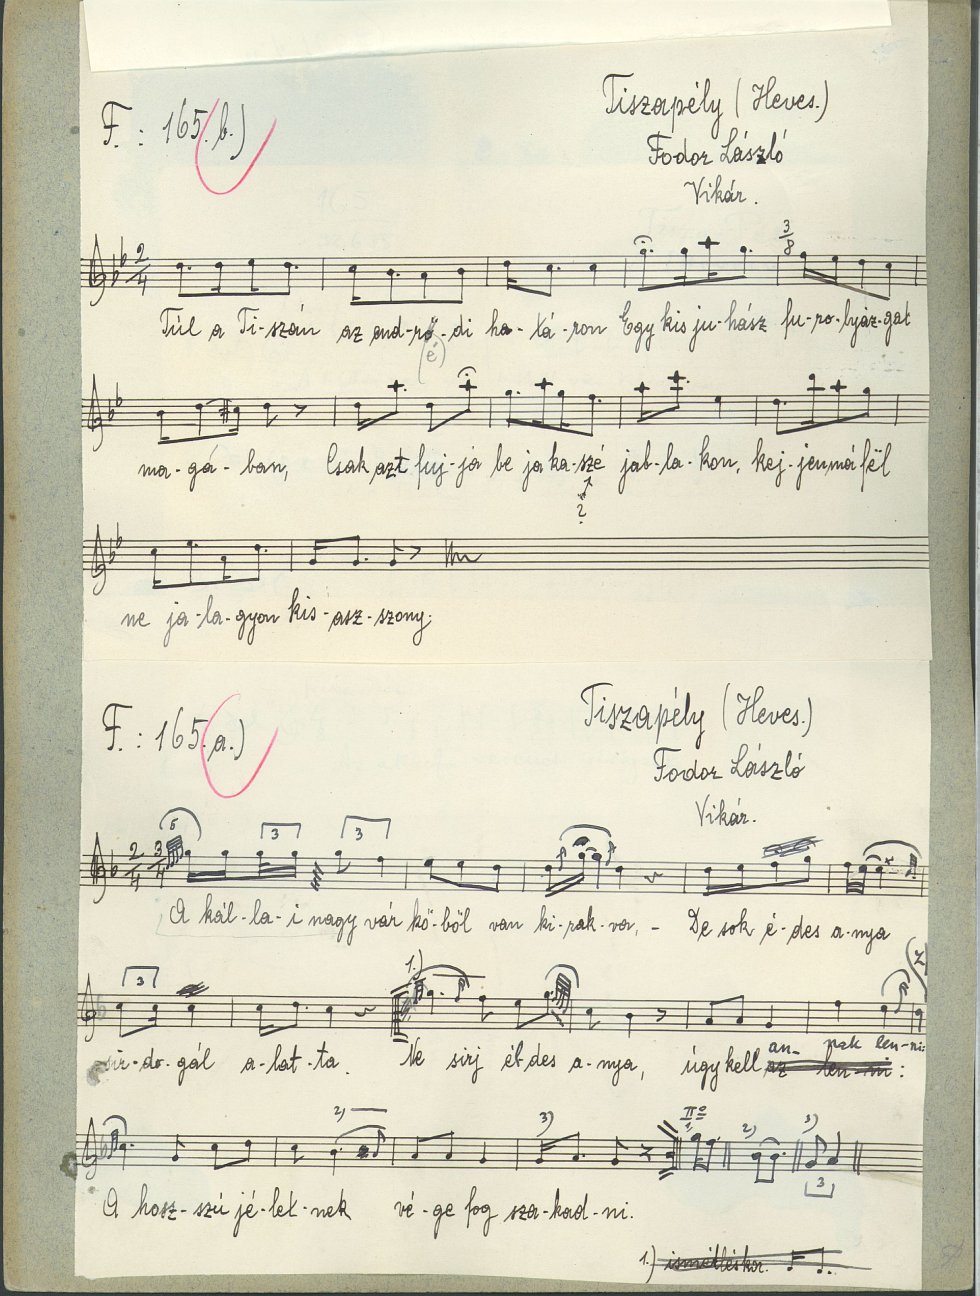 F. : 165. b.)
Tiszapély (Heves.)
Fodor László
Vikár.
2/4
3/8
Túl a Ti-szán az end-rő-di ha-tá-ron Egy kis ju-hász fu-ro-lyáz-gat
(é)
ma-gá-ban, Csak azt fuj-ja be ja ka-szé jab-la-kon, kej-jen má fël
?
ne ja-la-gyon kis-asz-szony.
F. : 165. a.)
Tiszapély (Heves.)
Fodor László
Vikár.
2/4 3/4
5 3 3
A kál-la-i nagy vár kő-ből van ki-rak-va, - De sok é-des a-nya
3 1.)
sir-do-gál a-lat-ta. Ne sirj éh-des a-nya, úgy kell an- nak len-ni:
az len-ni:
2) 3) II° 1. 2) 3)
3
A hosz-szú jé-let-nek vé-ge fog sza-kad-ni.
1.) ismétléskor.